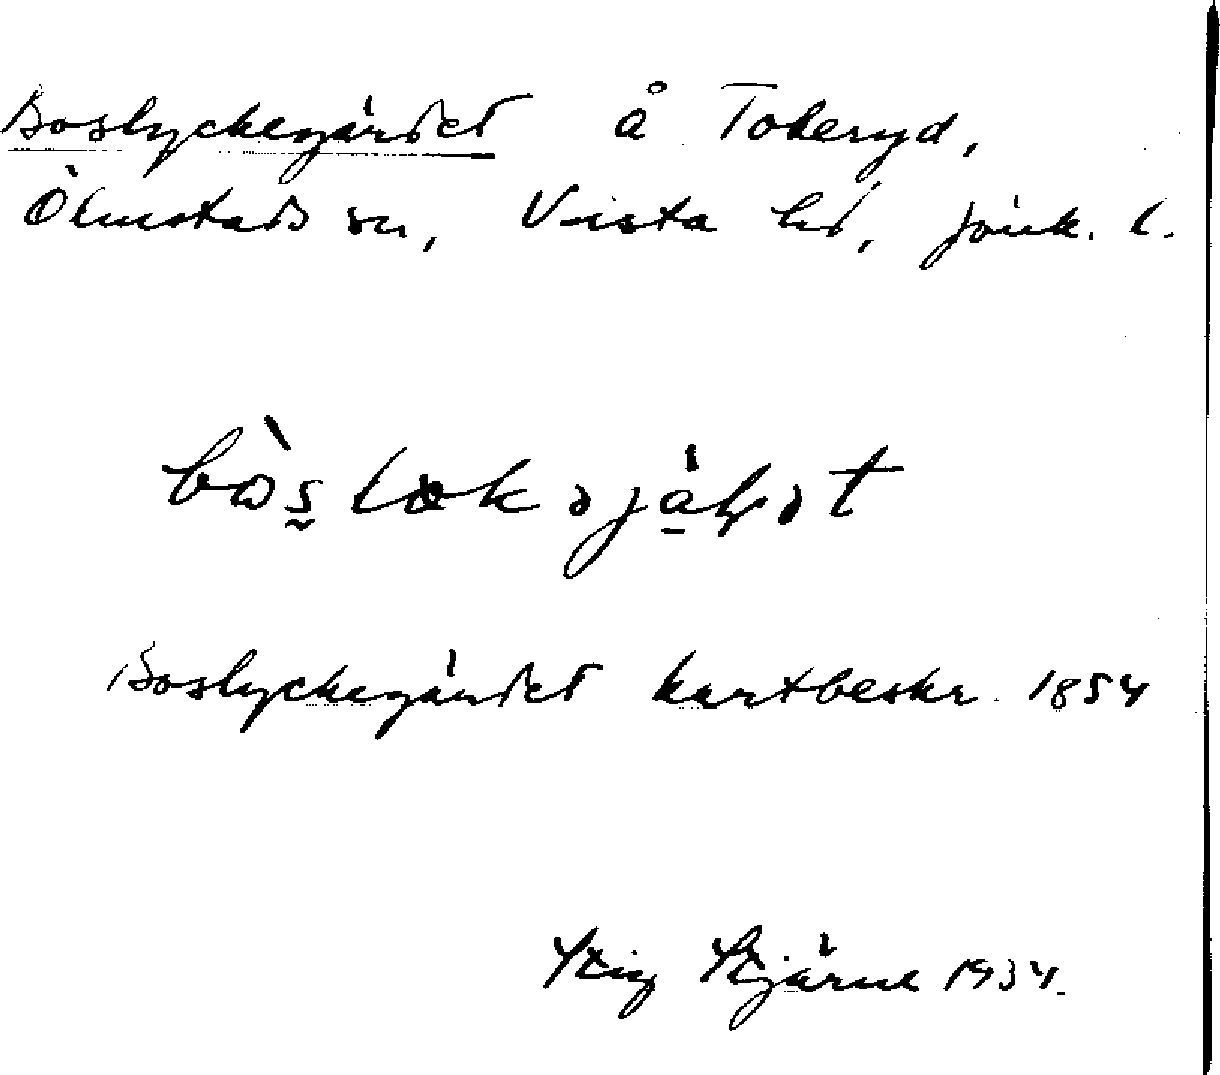 Boslyckegärdet å Tokeryd,
Ölmstads sn, Vista hd, Jönk. l.
Boslyckegärdet kartbeskr. 1854
Stig Stjärne 1934.